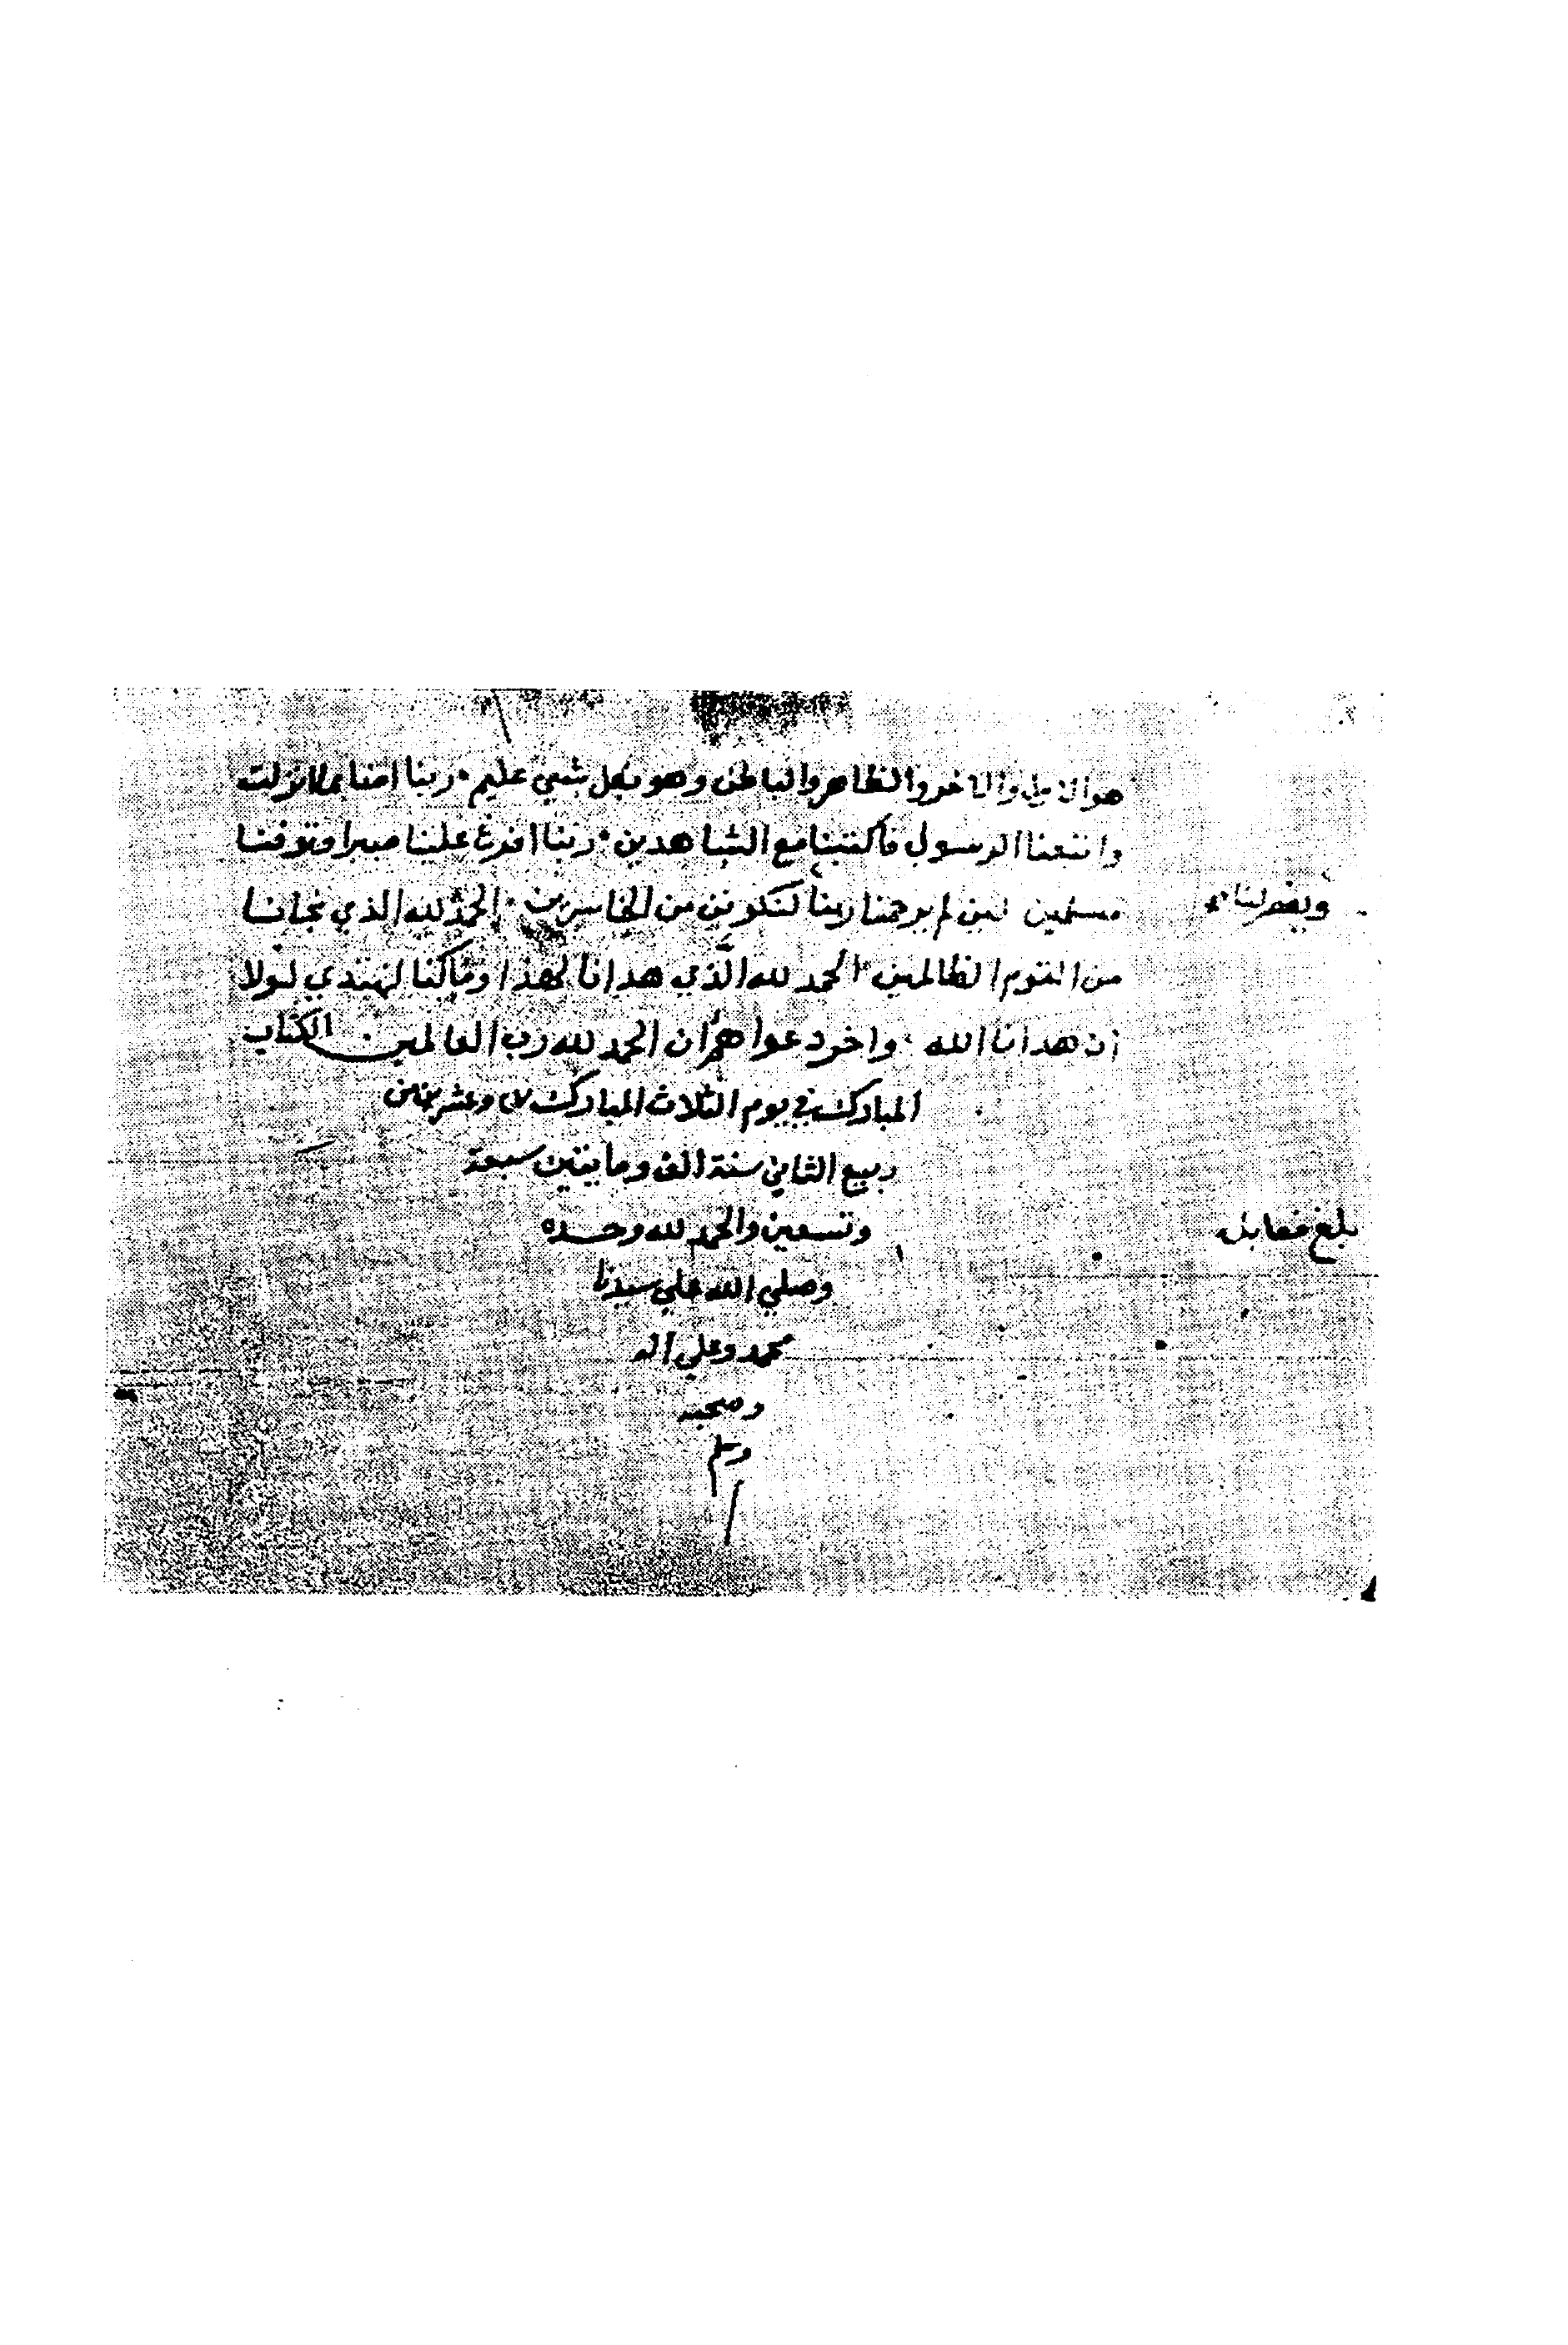 هو الاول والاخر والظاهر والباطن وهو بكل شيي عليم ۰ ربنا امنا بما انزلت
واتبعنا الرسول فاكتبنا مع الشاهدين ۰ ربنا افرغ علينا صبرا وتوفنا
مسلمين لين لم يرحمنا ربنا لنكونن من الخاسرين ۰ الحمد لله الذي نجانا
ويغفر لنا
من القوم الظالمين ۰ الحمد لله الذي هدانا لهذا وماكنا لنهتدي لولا
ان هدانا الله ۰ واخر دعواهم ان الحمد لله رب العالمين ۰ الكتاب
المبارك في يوم الثلاث المبارك وعشرين من
ربيع الثاني سنة الف ومايتين سبعة
وتسعين والحمد لله وحده
بلغ مقابل
وصلي الله علي سيدنا
محمد وعلي اله
وصحبه
وسلم